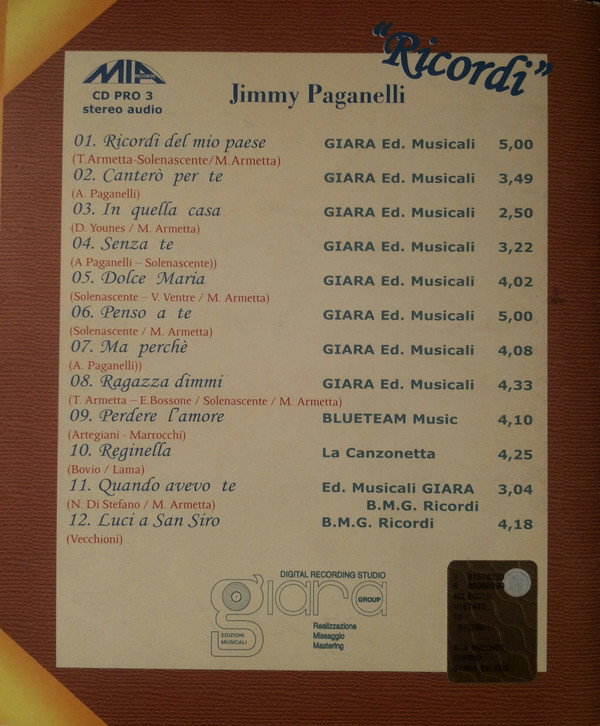 "Ricordi"
MIA
RECORDS
CD PRO 3
stereo audio
Jimmy Paganelli
01. Ricordi del mio paese GIARA Ed. Musicali 5,00
(T.Armetta-Solenascente/M.Armetta)
02. Canterò per te GIARA Ed. Musicali 3,49
(A. Paganelli)
03. In quella casa GIARA Ed. Musicali 2,50
(D. Younes / M. Armetta)
04. Senza te GIARA Ed. Musicali 3,22
(A Paganelli – Solenascente))
05. Dolce Maria GIARA Ed. Musicali 4,02
(Solenascente – V. Ventre / M. Armetta)
06. Penso a te GIARA Ed. Musicali 5,00
(Solenascente / M. Armetta)
07. Ma perchè GIARA Ed. Musicali 4,08
(A. Paganelli))
08. Ragazza dimmi GIARA Ed. Musicali 4,33
(T. Armetta – E.Bossone / Solenascente / M. Armetta)
09. Perdere l'amore BLUETEAM Music 4,10
(Artegiani - Marrocchi)
10. Reginella La Canzonetta 4,25
(Bovio / Lama)
11. Quando avevo te Ed. Musicali GIARA 3,04
(N. Di Stefano / M. Armetta) B.M.G. Ricordi
12. Luci a San Siro B.M.G. Ricordi 4,18
(Vecchioni)
DIGITAL RECORDING STUDIO
giara
GROUP
EDIZIONI
MUSICALI
Realizzazione
Missaggio
Mastering
NOLEGGIO
VIETATO
CD
RICORDI